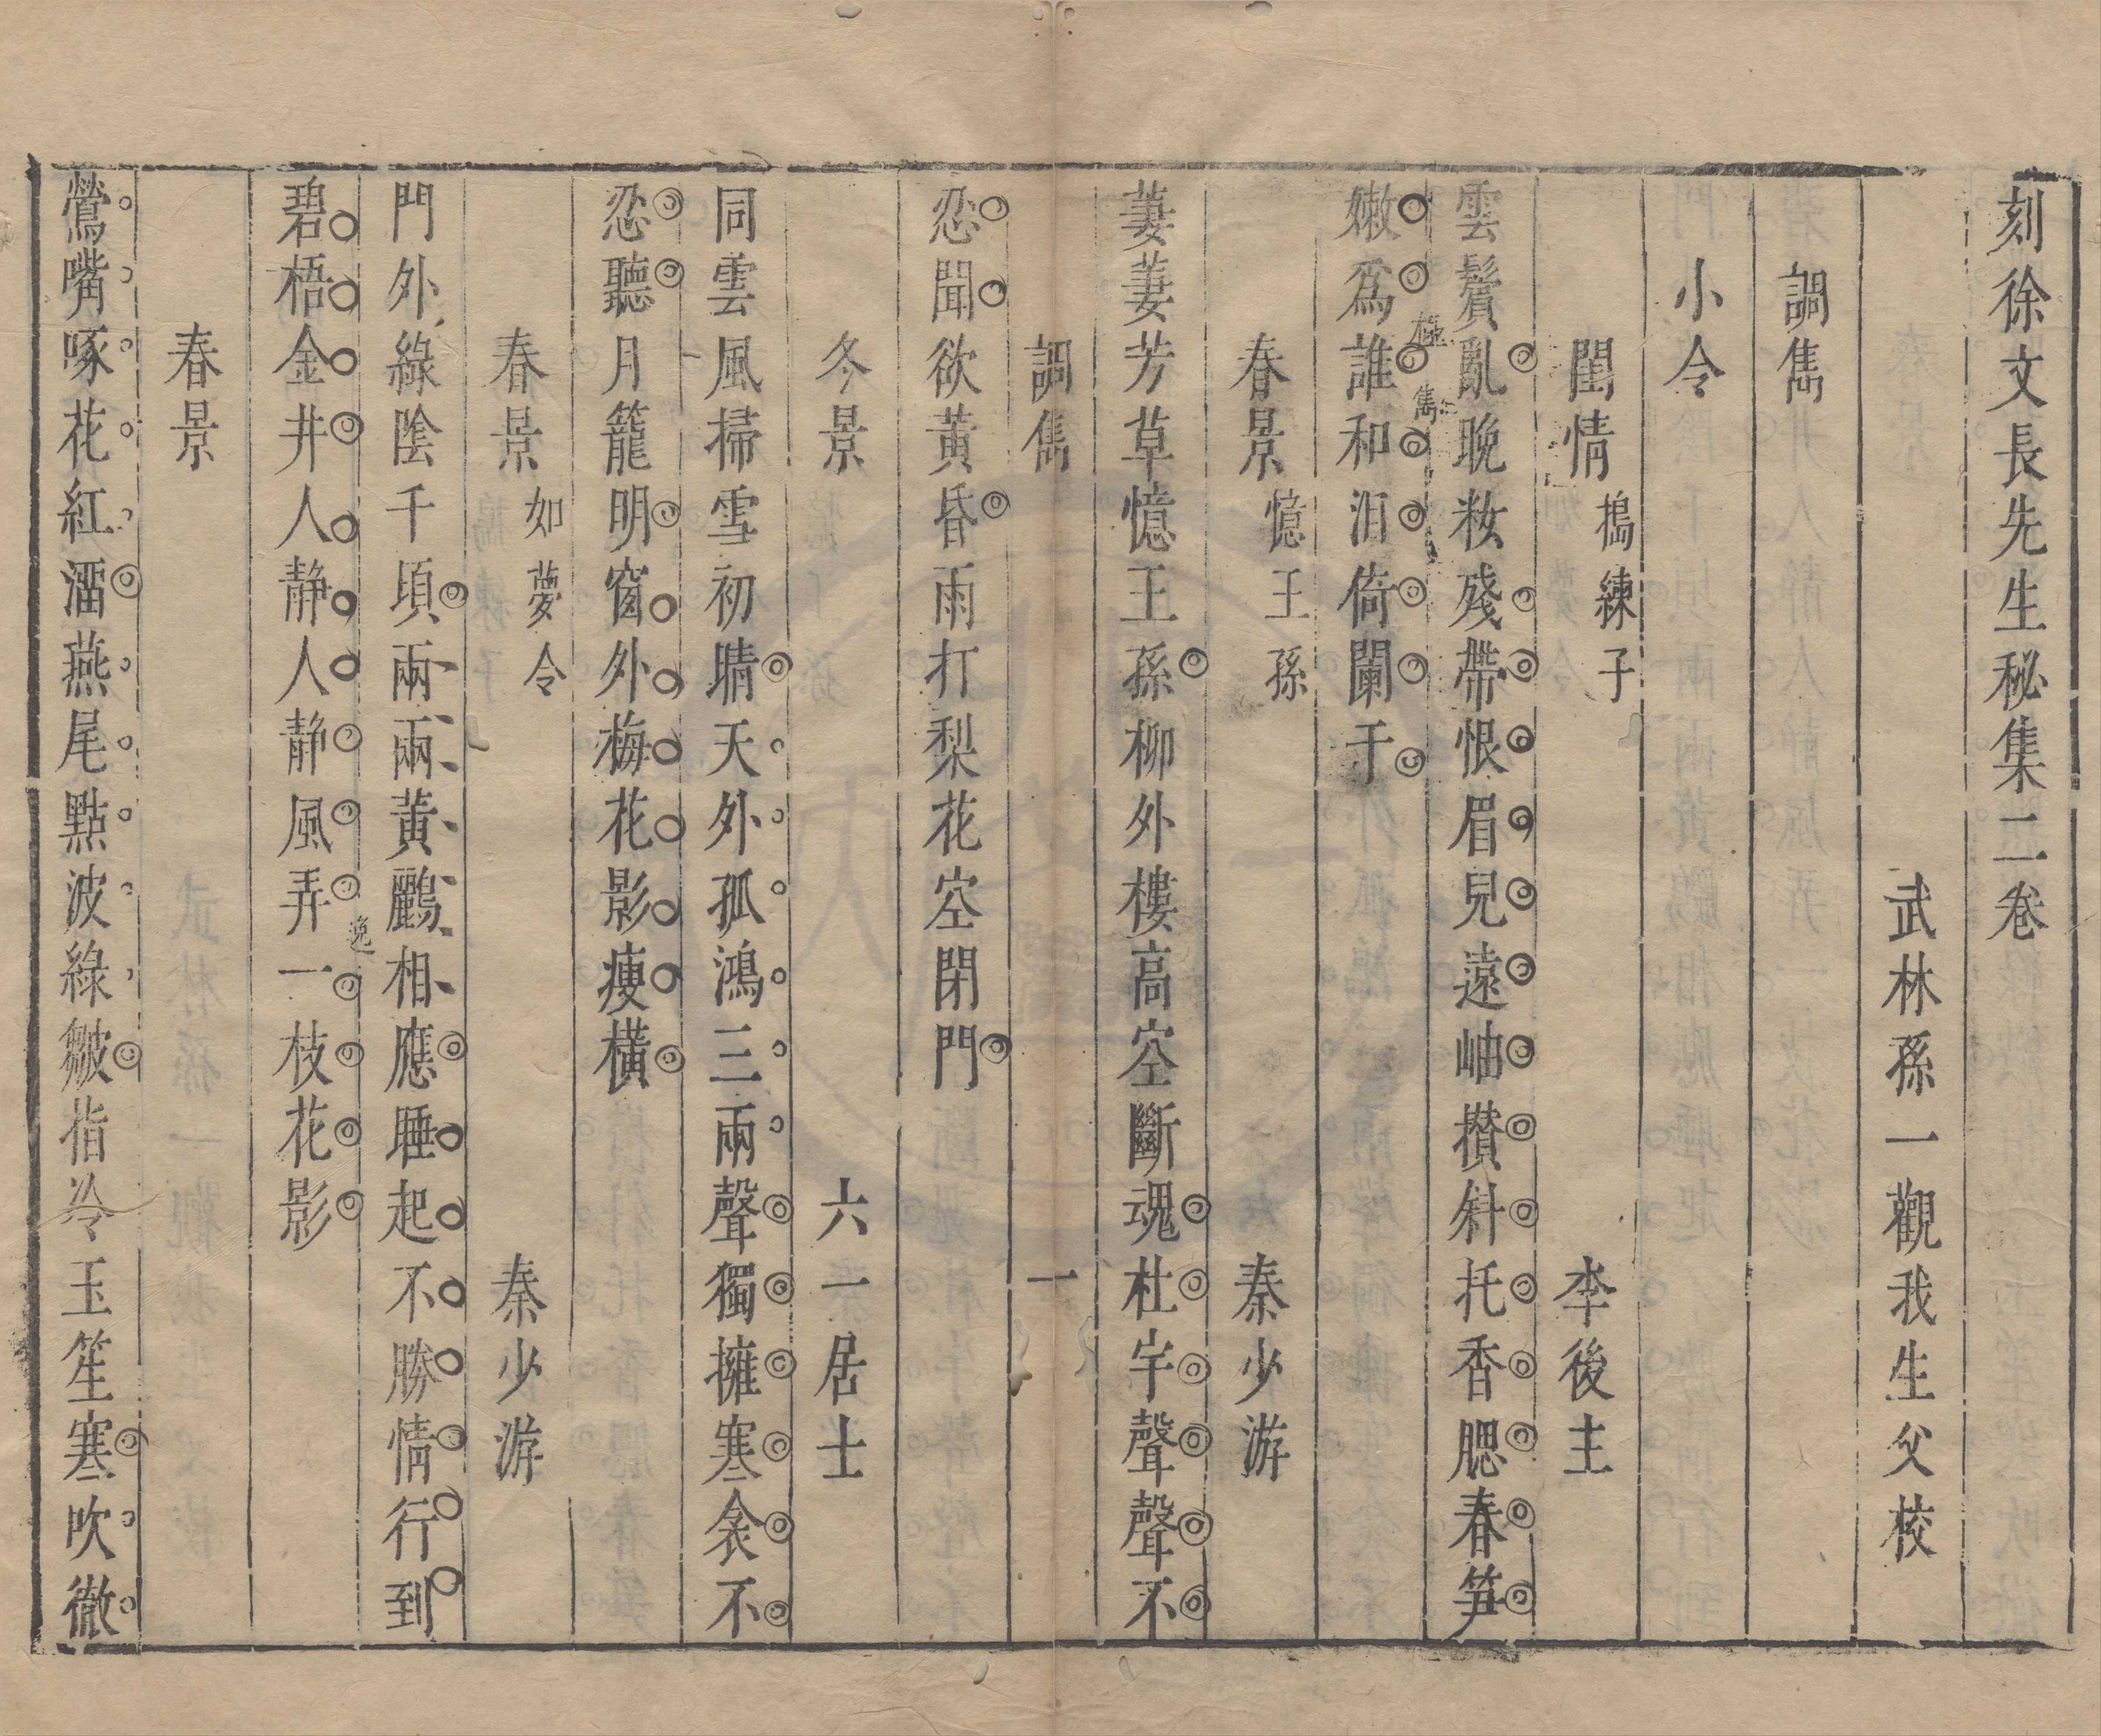 刻徐文長先生秘集二卷
武林孫一觀我生父校
調雋
小令
閨情 搗練子 李後主
雲鬢亂晚妝殘帶恨眉兒遠岫攅斜托香腮春笋
極雋
嫩爲誰和淚倚闌干
春景 憶王孫 秦少游
萋萋芳草憶王孫柳外樓高空斷魂杜宇聲聲不
調雋 一
忍聞欲黃昏雨打梨花空閉門
冬景 六一居士
同雲風掃雪初晴天外孤鴻三兩聲獨擁寒衾不
忍聽月籠明窗外梅花影瘦橫
春景 如夢令 秦少游
門外綠陰千頃兩兩黃鸝相應睡起不勝情行到
逸
碧梧金井人静人静風弄一枝花影
春景
鶯嘴啄花紅溜燕尾點波綠皺指冷玉笙寒吹徹